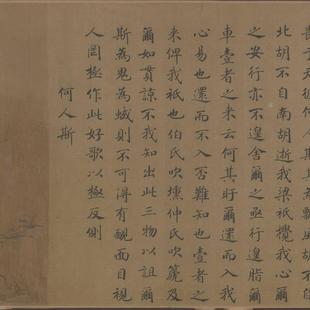 畏于天彼何人斯其為飄風胡不自
北胡不自南胡逝我梁祇攪我心爾
之安行亦不遑舍爾之亟行遑脂爾
車壹者之来云何其盱爾還而入我
心易也還而不入否難知也壹者之
来俾我祇也伯氏吹壎仲氏吹篪及
爾如貫諒不我知出此三物以詛爾
斯為鬼為蜮則不可得有靦面目視
人罔極作此好歌以極反側
何人斯